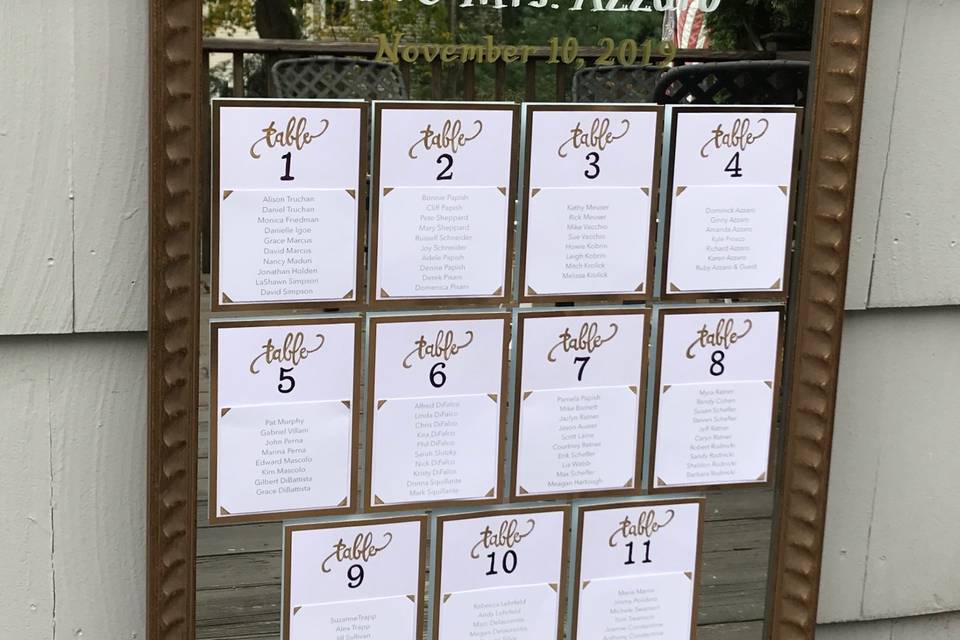 Mrs. Azzaro
November 10, 2019
table
1
Alison Truchan
Daniel Truchan
Monica Friedman
Danielle Igoe
Grace Marcus
David Marcus
Nancy Maduri
Jonathan Holden
LaShawn Simpson
David Simpson
table
2
Bonnie Papish
Cliff Papish
Pete Sheppard
Mary Sheppard
Russell Schneider
Joy Schneider
Adele Papish
Dennis Papish
Derek Pisani
Domenica Pisani
table
3
Kathy Meuser
Rick Meuser
Mike Vecchio
Sue Vecchio
Howie Kobrin
Leigh Kobrin
Mitch Krolick
Melissa Krolick
table
4
Dominick Azzaro
Ginny Azzaro
Amanda Azzaro
Kyle
Richard Azzaro
Karen Azzaro
Ruby Azzaro & Guest
table
5
Pat Murphy
Gabriel Villani
John Perna
Marina Perna
Edward Mascolo
Kim Mascolo
Gilbert DiBattista
Grace DiBattista
table
6
Alfred DiFalco
Linda DiFalco
Chris DiFalco
Kira DiFalco
Phil DiFalco
Sarah Slutsky
Nick DiFalco
Kristy DiFalco
Donna Squillante
Mark Squillante
table
7
Pamela Papish
Mike Barnett
Jaclyn Ratner
Jason Auster
Scott Laine
Courtney Ratner
Erik Scheffer
Lia Walsh
Max Scheffer
Meagan Hartough
table
8
Myra Ratner
Randy Cohen
Susan Scheffer
Steven Scheffer
Jeff Ratner
Caryn Ratner
Robert Rodnicki
Sandy Rodnicki
Sheldon Rodnicki
Barbara Rodnicki
table
9
Suzanne Trapp
Alex Trapp
Jill Sullivan
table
10
Rebecca Lehrfeld
Andy Lehrfeld
Marc Delaurente
Megan Delaurente
table
11
Maria
Jimmy
Michele Swanson
Tom Swanson
Joanne Constantine
Anthony Constantine